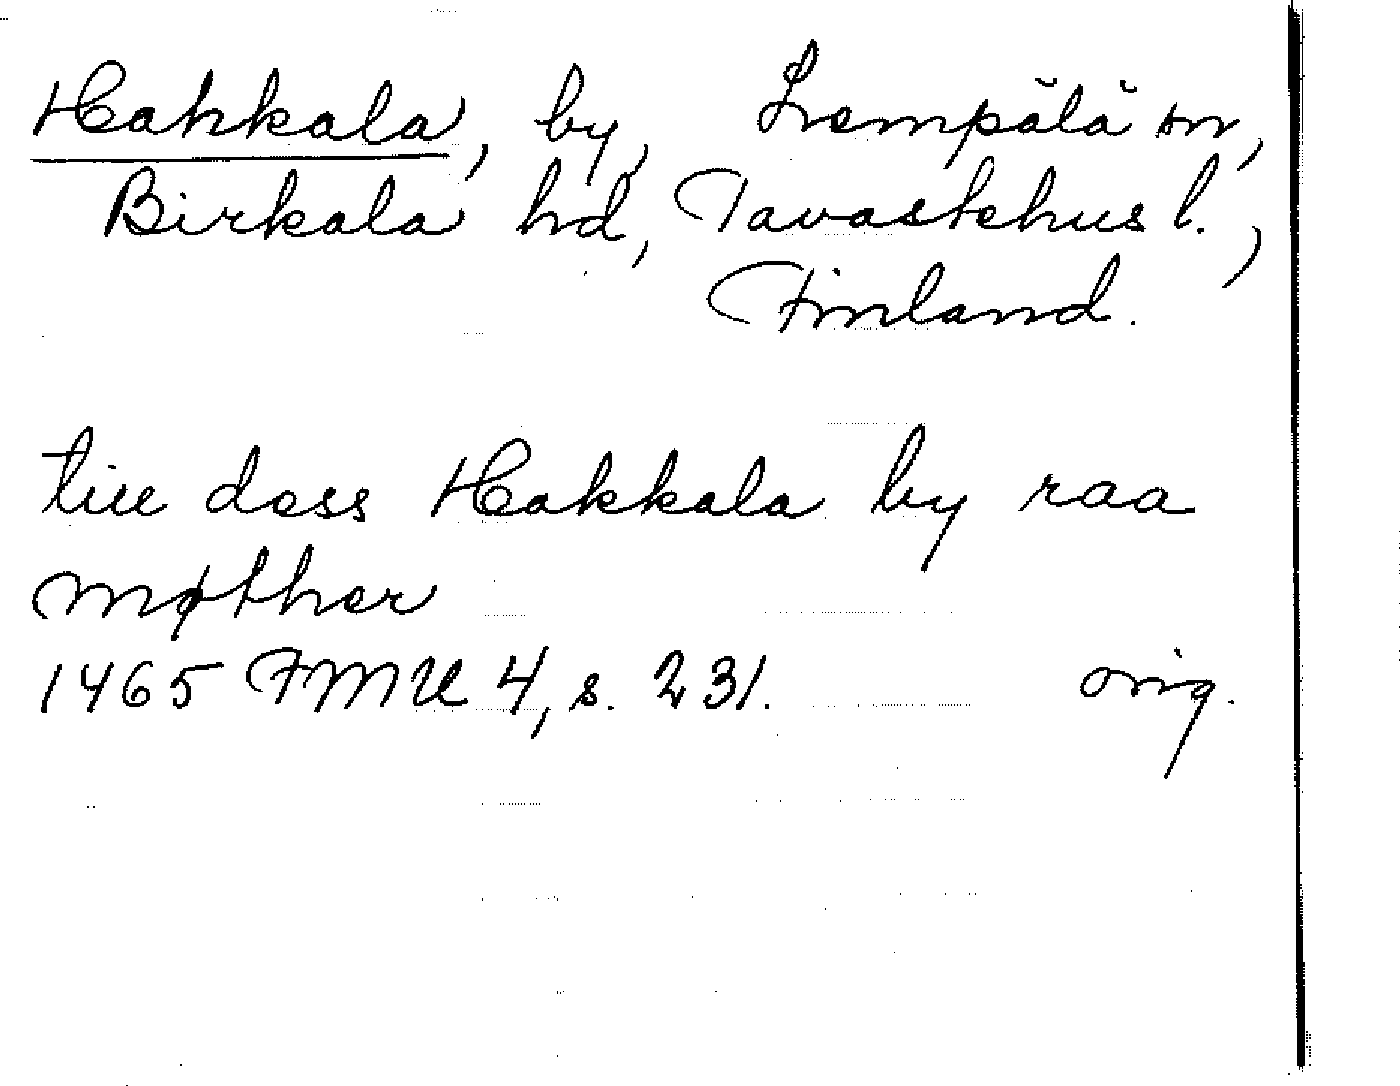 Hahkala, by, Lempälä sn,
Birkala hd, Tavastehus l.,
Finland.
till dess Hakkala by raa
møther
1465 FMU 4, s. 231. orig.